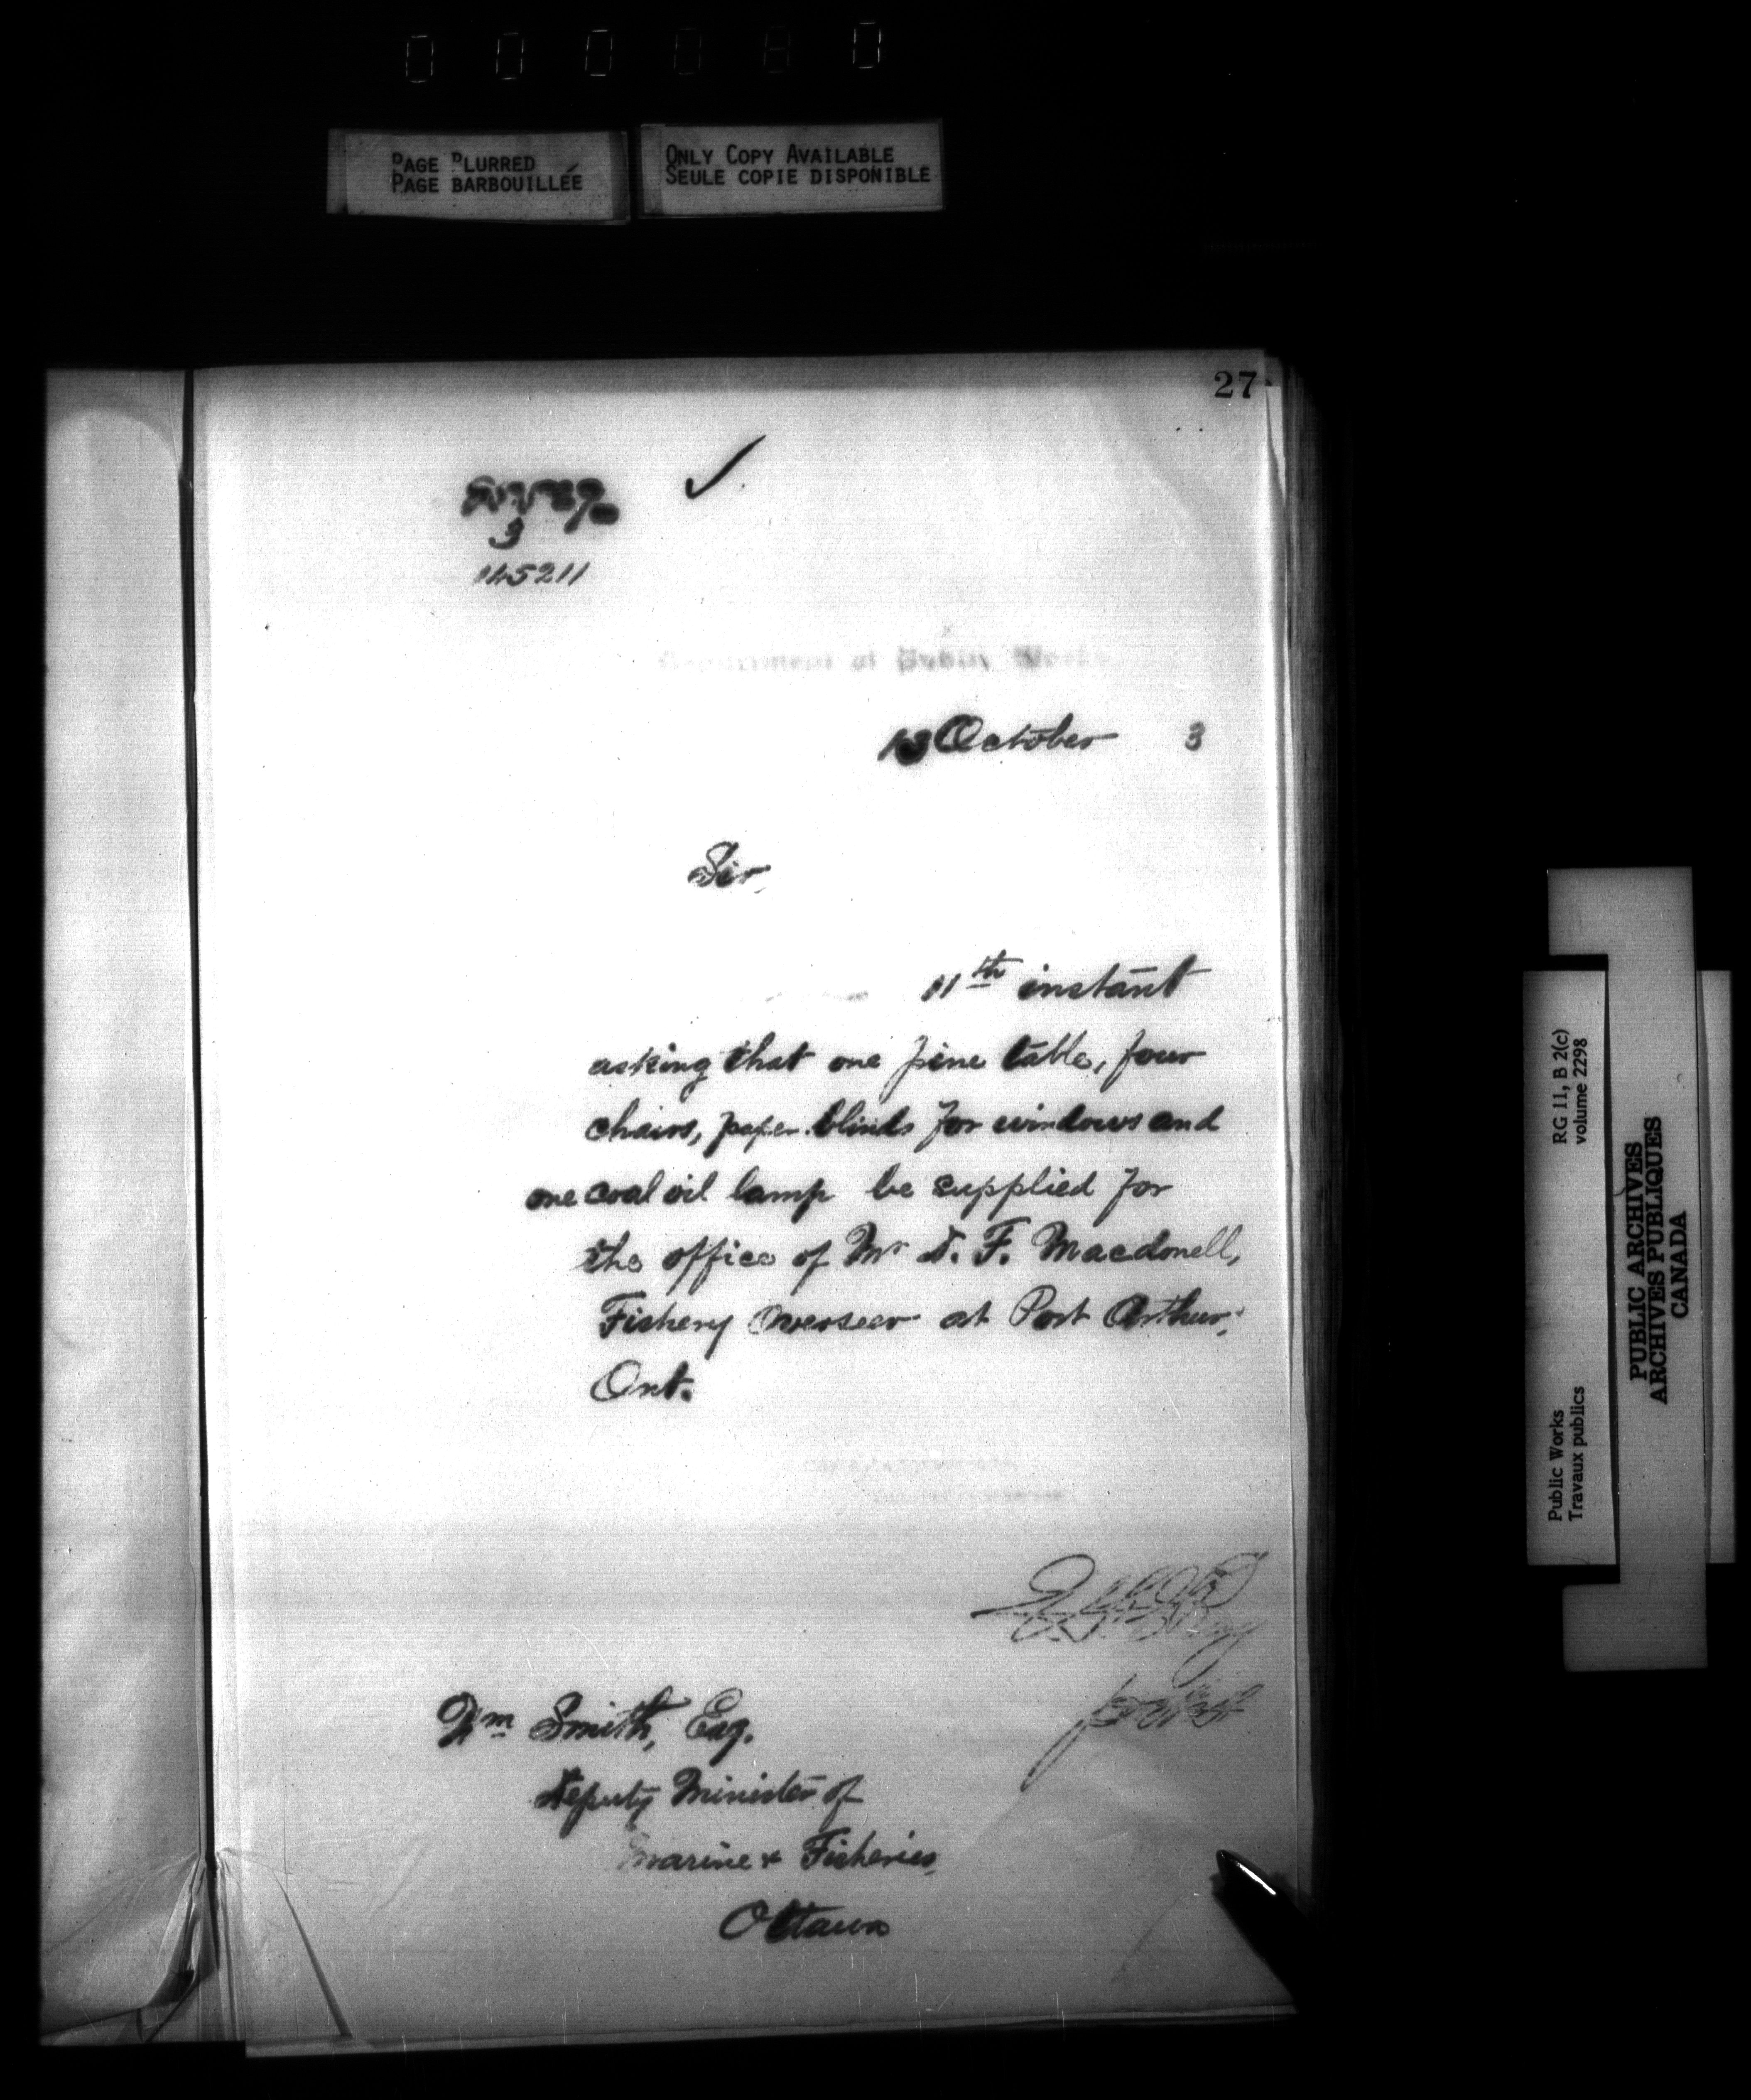 PAGE BLURRED
PAGE BARBOUILLÉE
ONLY COPY AVAILABLE
SEULE COPIE DISPONIBLE
27
3
145211
Department of Public Works
13 October 3
Sir,
11th instant
asking that one pine table, four
chairs, paper blinds for windows and
one coal oil lamp be supplied for
the office of Mr D. F. Macdonell,
Fishery Overseer at Port Arthur,
Ont.
Wm Smith, Esq.
Deputy Minister of
Marine & Fisheries,
Ottawa
RG 11, B 2(c)
volume 2298
Public Works
Travaux publics
PUBLIC ARCHIVES
ARCHIVES PUBLIQUES
CANADA